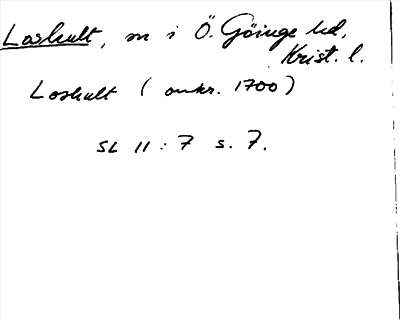 Loshult, sn i Ö. Göinge hd,
Krist. l.
Loshult (omkr. 1700)
SL 11:7 s. 7.